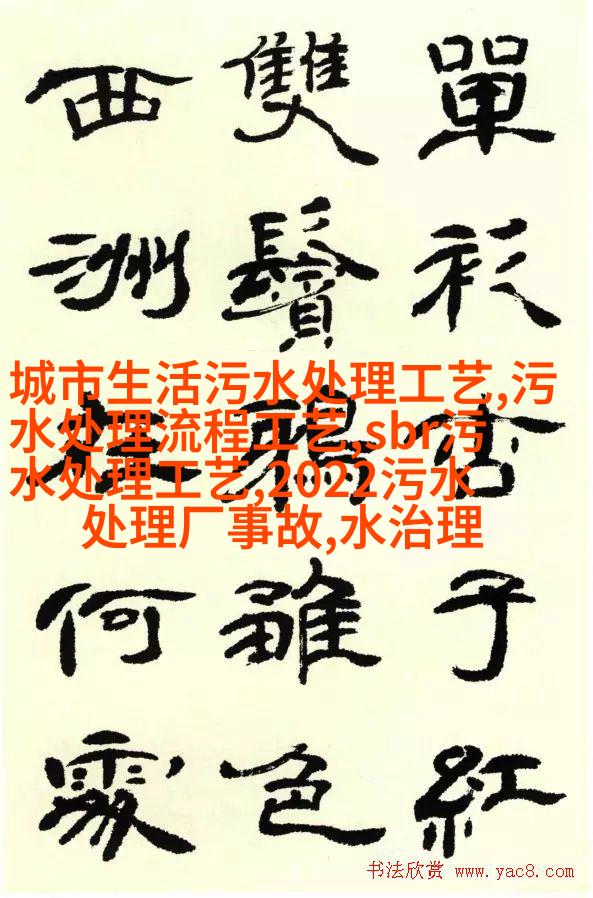 單衫杏子紅
雙鬢鴉雛色
西洲在何處
城市生活污水处理工艺,污
水处理流程工艺,sbr污
水处理工艺,2022污水
处理厂事故,水治理
书法欣赏 www.yac8.com